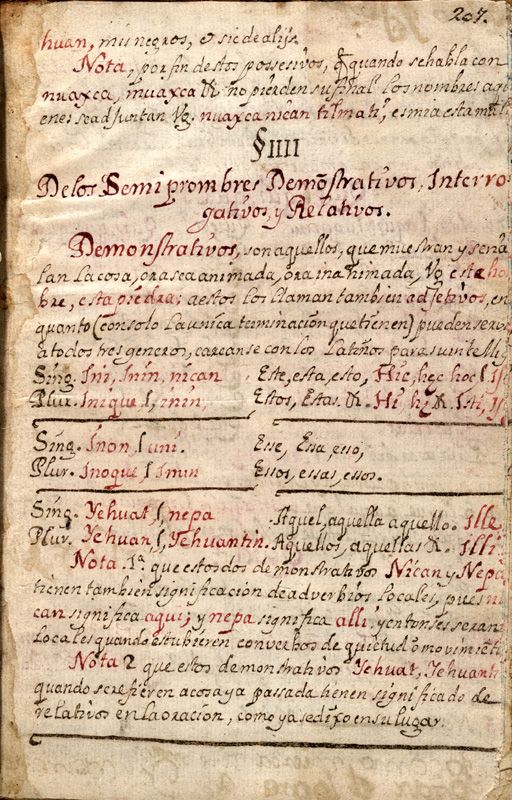 207.
huan, mis negros, et sic de alijs.
Nota, por fin destos possesivos, q̃ quando se habla con
nuaxca, muaxca &. no pierden su final los nombres aqi
enes se adjuntan Vg. nuaxca nican tilmati, es mia esta
§ IIII
De los Semiprombres Demõstrativos, Interro-
gativos, y Relativos.
Demonstrativos, son aquellos, que muestran y seña
lan la cosa, ora sea animada, ora inanimada, Vg. este ho
bre, esta piedra; a estos los llaman tambien adjetivos, en
quanto (con solo la unica terminacion que tienen) pueden servir
a todos tres generos, carcanse con los Latinos para su
Sing. Ini, Inin, nican Este, esta, esto, Hic, hęc hoc l,
Plur. Inique, l, inin, Estos, Estas &. Hi, hę & Isti,
Sing. Inon, l uni. Esse, Essa esso,
Plur. Inoque, l, Inun Essos, essas, essos.
Sing. Yehuat, l, nepa Aquel, aquella aquello. Ille
Plur. Yehuan, l, Yehuantin. Aquellos, aquellas &. Illi
Nota. 1ª. que estos dos demonstrativos Nican y Nepa
tienen tambien significacion de adverbios locales, pues ni
can significa aqui; y nepa significa alli, y entonses seran
locales quando estubieren con verbos de quietud o movimieti
Nota 2 que estos demonstrativos Yehuat, Yehuanti
quando se refieren a cosa ya passada tienen significado de
relativos en la oracion, como ya se dixo en su lugar.